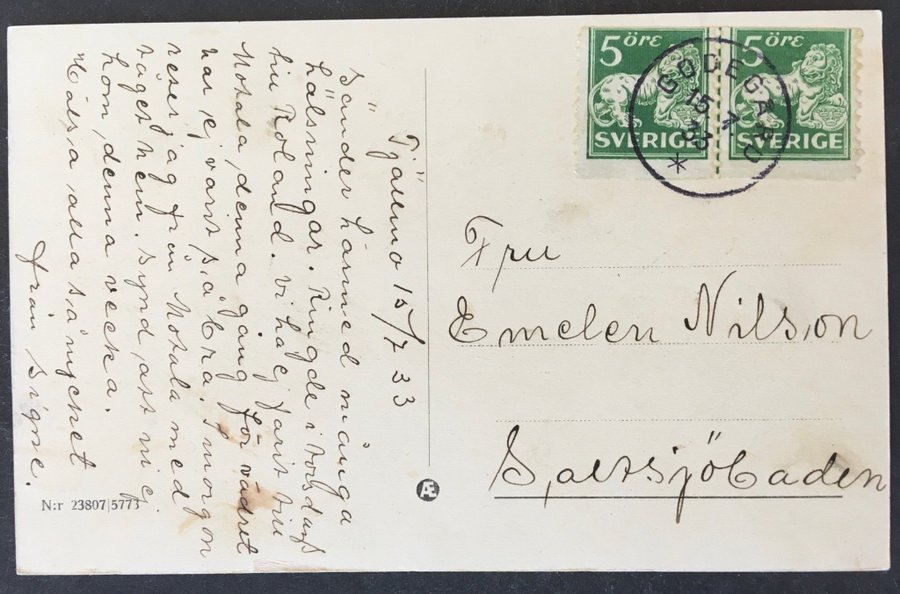 Tjällmo 15/7 33
Sänder härmed många
hälsningar. Ringde i torsdags
till Roland. vi ha ej farit till
Motala, denna gång för vädret
har ej varit så bra. I morgon
reser jag från Motala med
tåget hem. synd, att ni ej
kom, denna vecka.
Hälsa, alla så mycket
från Signe.
N:r 23807/5773
Æ
5 öre
SVERIGE
5 öre
SVERIGE
GODEGÅRD
15 7
33
Fru
Emelen Nilson
Saltsjöbaden